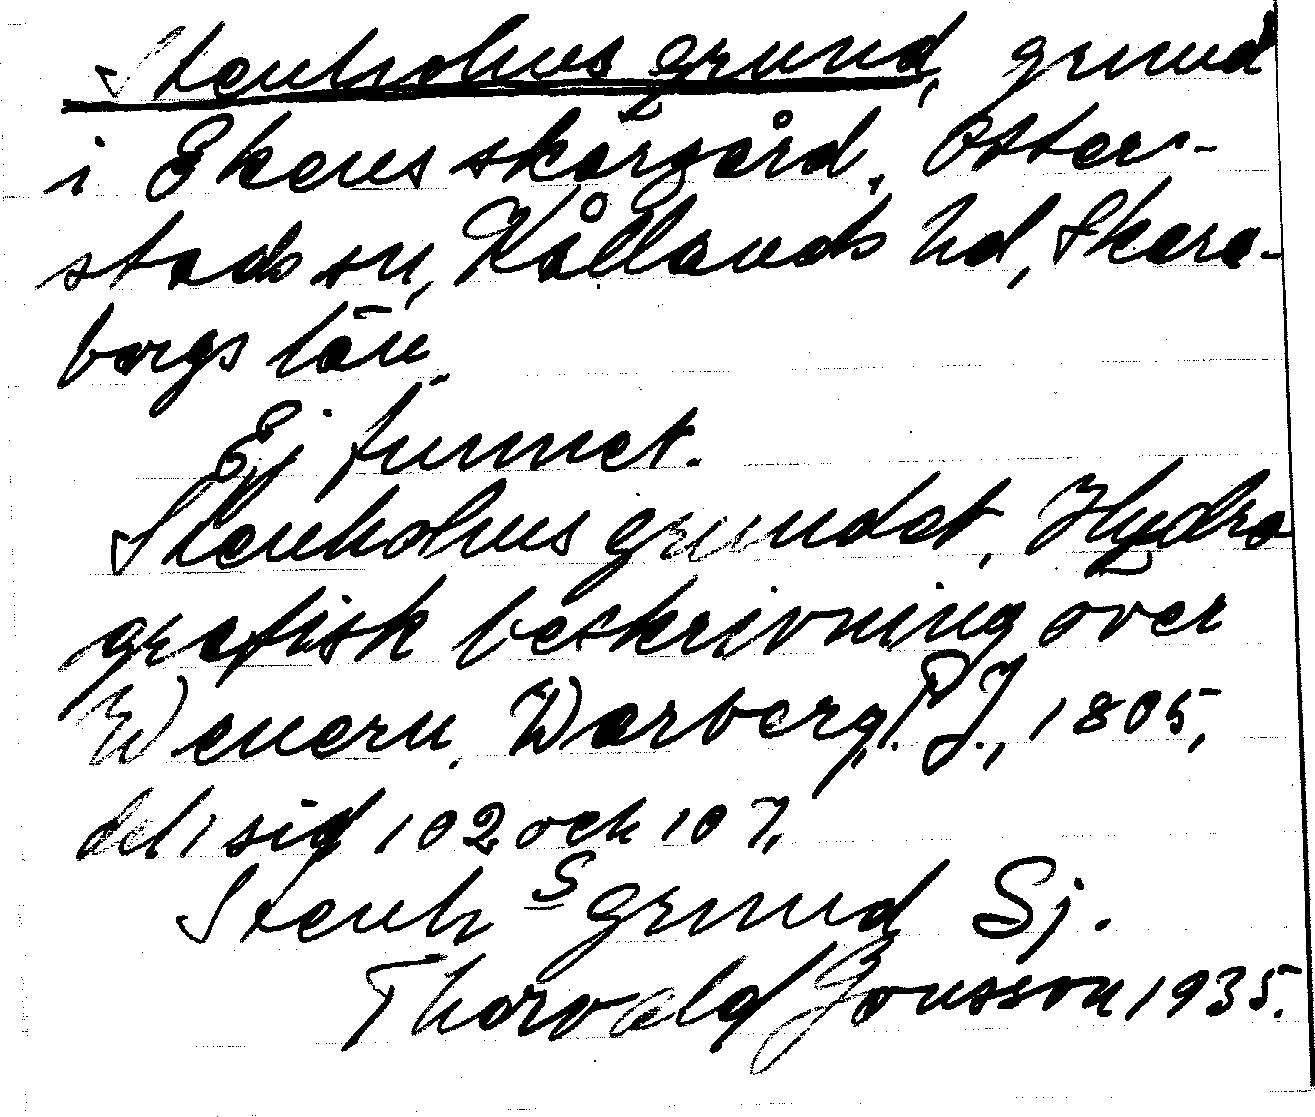 Stenholms grund, grund
i Ekens skärgård, Otter-
stads sn, Kållands hd, Skara-
borgs län.
Ej funnet.
Stenholms grundet, Hydro
grafisk beskrivning över
Wenern. Warberg, P. J., 1805,
del 1 sid 102 och 107,
Stenh S grund Sj.
Thorvald Jonsson 1935.